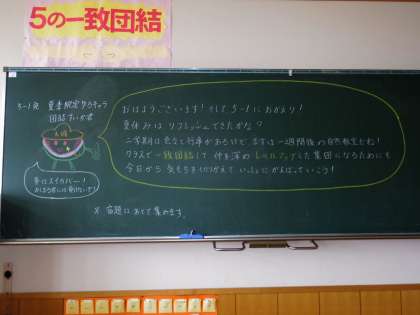 5の一致団結
5-1発 夏季限定ゆるキャラ
団結すいか君
おはようございます!そして5-1におかえり!
夏休みはリフレッシュできたかな?
二学期は色々と行事があるけど、まずは一週間後の自然教室だね!
クラスで一致団結して仲を深めレベルアップした集団になるためにも
今日から気もちを切りかえていっしょにがんばっていこう!
※ 宿題はあとで集めます。